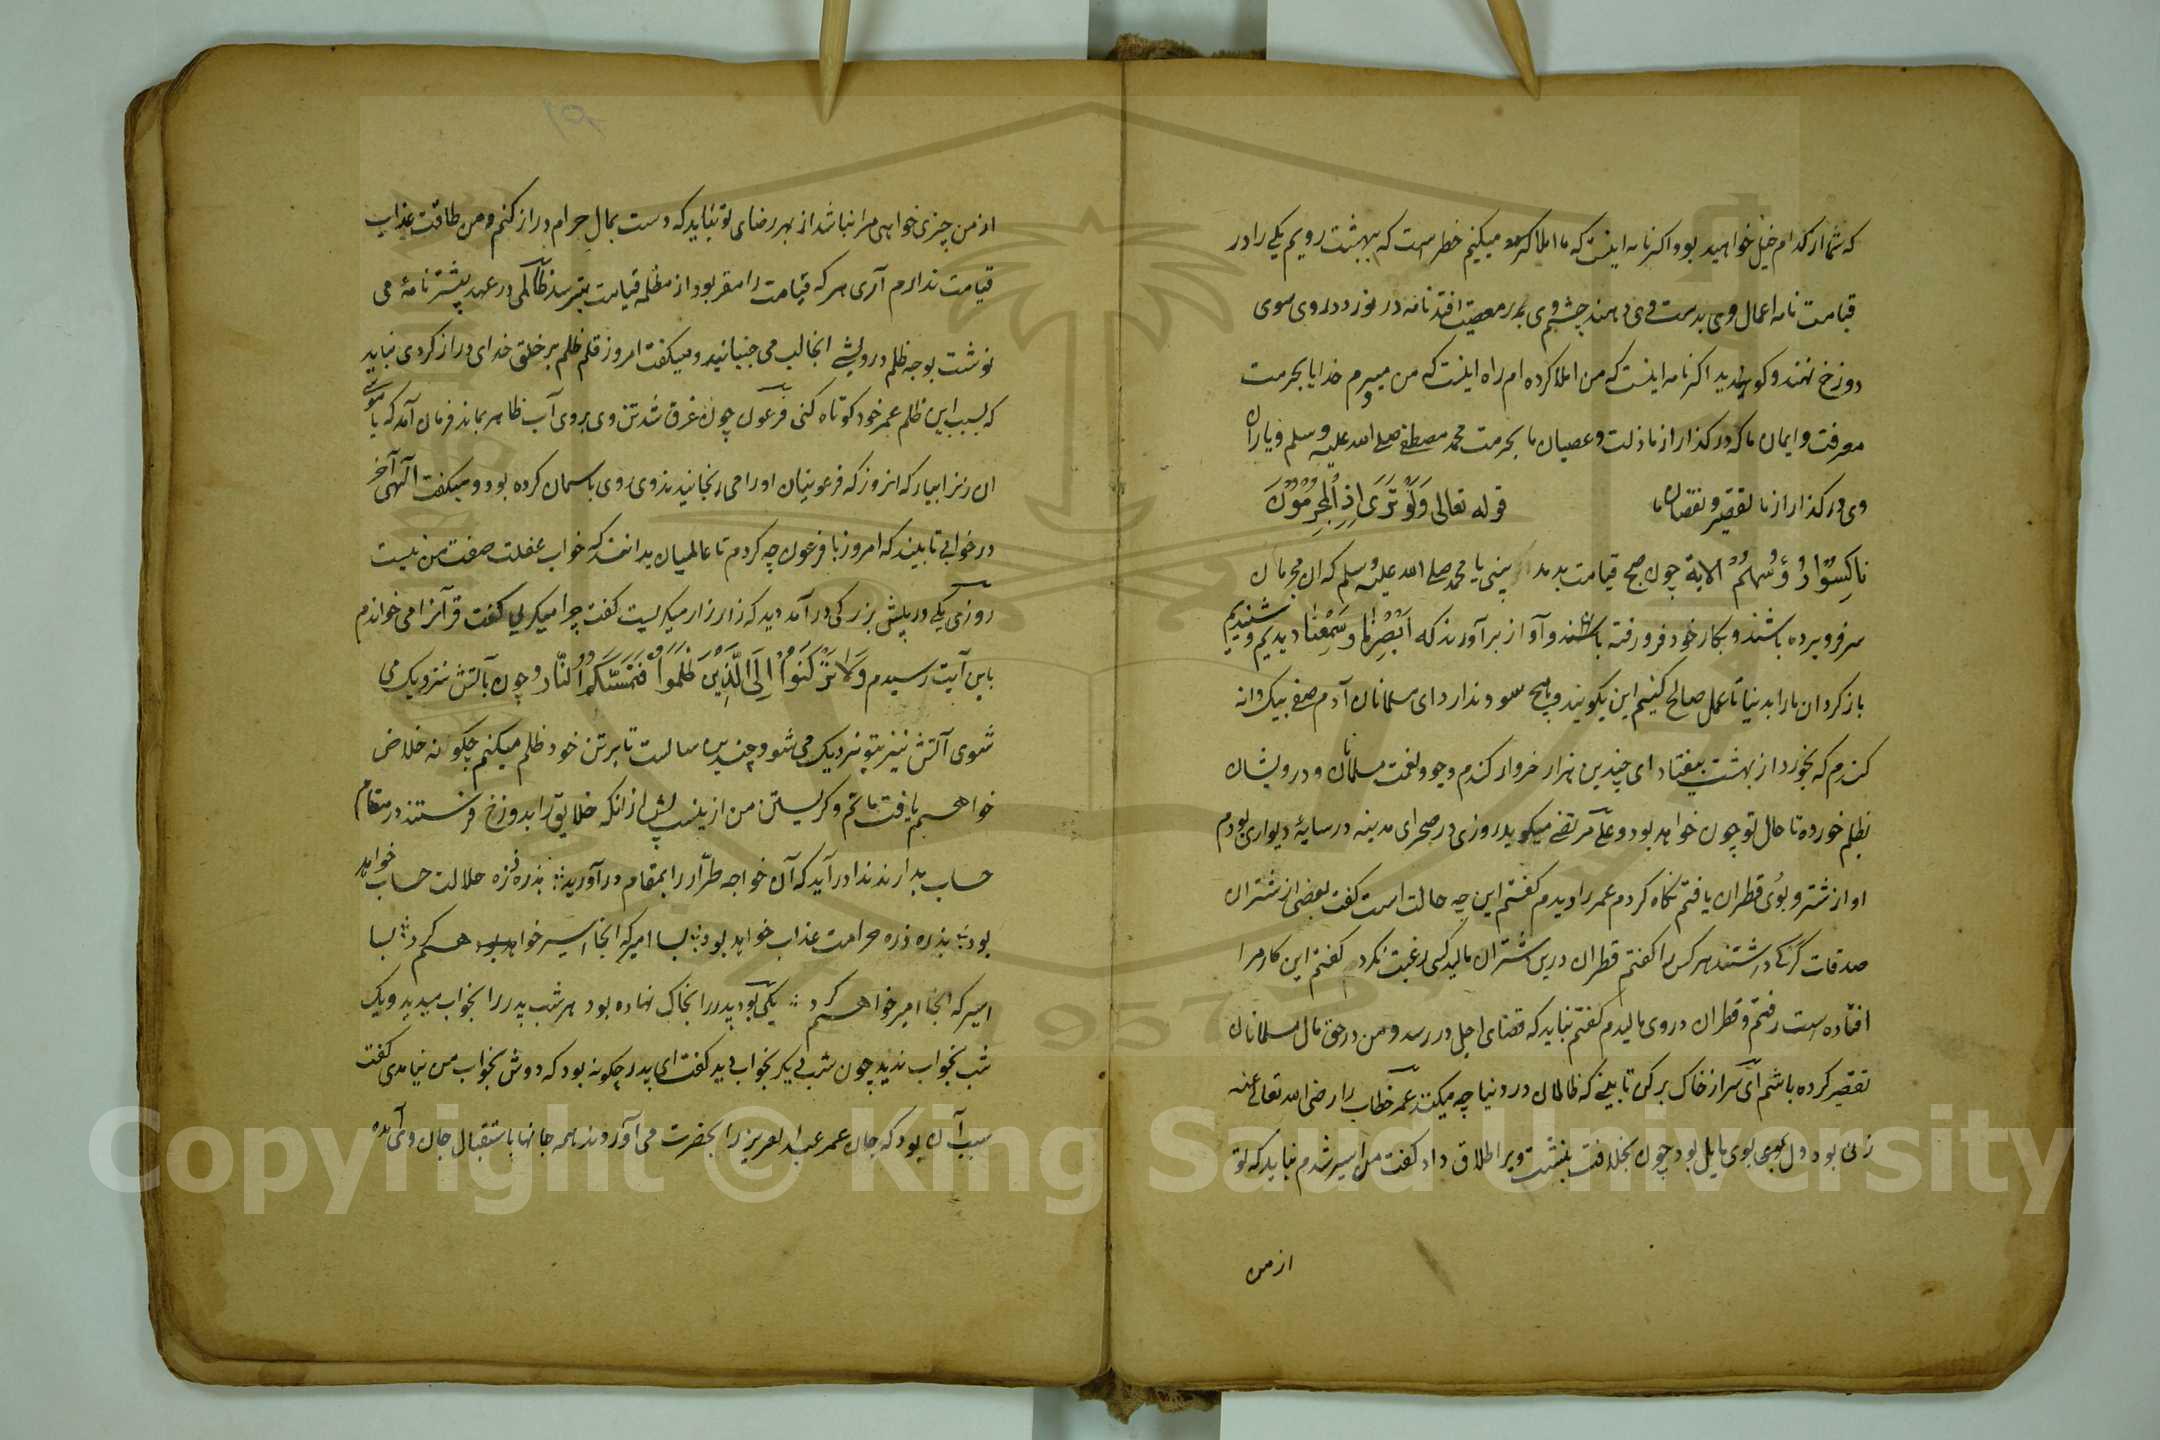 که شما از کدام خیل خواهید بود اگر نامه اینست که ما املا کرده میکنیم خطرست که ببهشت رویم یکی را در
قیامت نامه اعمال وی بدست وی دهند چشم وی بدر معصیت افتد نامه در نوردد روی سوی
دوزخ نهند و کوید اگر نامه اینست که من املا کرده ام راه اینست که من میروم خدایا بحرمت
معرفت و ایمان ما که در گذار از ما ذلت و عصیان ما بحرمت محمد مصطفی صلی الله علیه وسلم و یاران
وی در گذار از ما تقصیر و نقصان ما قوله تعالی وَلَوْ تَرَى إِذِ الْمُجْرِمُونَ
نَاكِسُوا رُؤُسِهِمْ الایة چون صبح قیامت بدمد بینی یا محمد صلی الله علیه وسلم که آن مجرمان
سر فرو برده باشند و بکار خود فرو رفته باشند و آواز بر آورند که اَبْصَرْنَا وَسَمِعْنَا دیدیم و شنیدیم
باز کردان ما را بدنیا تا عمل صالح کنیم این بکویند و هیچ سود ندارد ای مسلمانان آدم صفی بیک دانه
کندم که بخورد از بهشت بیفتاد ای چندین هزار خروار کندم و جو و نعمت مسلمانان و درویشان
بظلم خورده تا حال تو چون خواهد بود و علی مرتضی میکوید روزی در صحرای مدینه در سایهٔ دیواری بودم
اواز شتر و بوی قطران یافتم نکاه کردم عمر را دیدم کفتم این چه حالت است کفت بعضی از شتران
صدقات کرکی داشتند هر کس را کفتم قطران درین شتران مالید کسی رغبت نکرد کفتم این کار مرا
افتاده است رفتم و قطران در وی مالیدم کفتم نباید که قضای اجل در رسد و من در حق مال مسلمانان
تقصیر کرده باشم ای سر از خاک بر کن تا ببینی که ظالمان در دنیا چه میکنند عمر خطاب را رضی الله تعالی عنه
زنی بود دل وی بوی مایل بود چون بخلافت بنشست ویرا طلاق داد کفت من اسیر شدم نباید که تو
از من
از من چیزی خواهی مرا نباشد از بهر رضای تو نباید که دست بمال حرام دراز کنم و من طاقت عذاب
قیامت ندارم آری هر که قیامت را مقر بود از مظلمه قیامت بترسد ظالمی در عهد پیشتر نامهٔ می
نوشت بوجه ظلم درویشی انجا لب می جنبانید و میکفت امروز قلم ظلم بر خلق خدای دراز کردی نباید
که بسبب این ظلم عمر خود کوتاه کنی فرعون چون غرق شد تن وی بروی آب ظاهر بماند فرمان آمد که یا موسی
ان روز را بیاد که انروز که فرعونیان اورا می رنجانیدند وی روی باسمان کرده بود و میکفت الهی آخر
در خوابی تا ببیند که امروز با فرعون چه کردم تا عالمیان بدانند که خواب غفلت صفت من نیست
روزی یکی در پیش بزرکی در آمد دید که زار زار میکریست کفت چرا میکریی کفت قرآن را می خواندم
باین آیت رسیدم وَلَا تَرْكَنُوا إِلَى الَّذِينَ ظَلَمُوا فَتَمَسَّكُمُ النَّار چون بآتش نزدیک می
شوی آتش نیز بتو نزدیک می شود چندین سالست تا بر تن خود ظلم میکنم چکونه خلاص
خواهم یافت ماتم و کریستن من از ینست پیش از انکه خلایق را بدوزخ فرستند در مقام
حساب بدارند ندا در آید که آن خواجه طرّار را بمقام در آورید بذره ذره حلالت حساب خواهد
بود بذره ذره حرامت عذاب خواهد بود بسا امیر که انجا اسیر خواهم کرد بسا
اسیر که انجا امیر خواهم کرد یکی بود پدر را بخاک نهاده بود هر شب پدر را بخواب میدید و یک
شب بخواب ندید چون شب دیکر بخواب دید کفت ای پدر چکونه بود که دوش بخواب من نیامدی کفت
سبب آن بود که جان عمر عبد العزیز را بحضرت می آوردند همه جانها باستقبال جان وی آمده
Copyright © King Saud University
1957